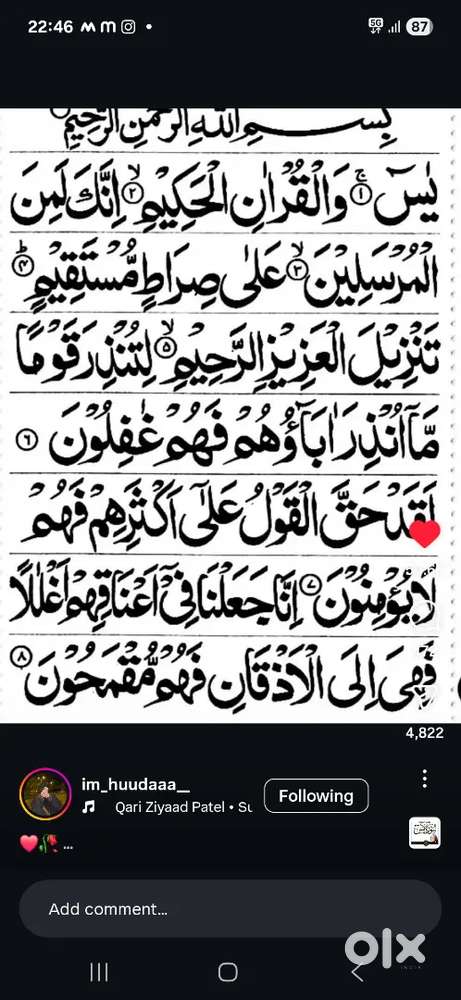 22:46
5G
87
بِسْمِ اللّٰهِ الرَّحْمٰنِ الرَّحِيْمِ
يٰسٓ ۚ﴿۱﴾ وَالْقُرْاٰنِ الْحَكِيْمِ ۙ﴿۲﴾ اِنَّكَ لَمِنَ
الْمُرْسَلِيْنَ ۙ﴿۳﴾ عَلٰى صِرَاطٍ مُّسْتَقِيْمٍ ؕ﴿۴﴾
تَنْزِيْلَ الْعَزِيْزِ الرَّحِيْمِ ۙ﴿۵﴾ لِتُنْذِرَ قَوْمًا
مَّاۤ اُنْذِرَ اٰبَآؤُهُمْ فَهُمْ غٰفِلُوْنَ ﴿۶﴾
لَقَدْ حَقَّ الْقَوْلُ عَلٰۤى اَكْثَرِهِمْ فَهُمْ
لَا يُؤْمِنُوْنَ ﴿۷﴾ اِنَّا جَعَلْنَا فِيْۤ اَعْنَاقِهِمْ اَغْلٰلًا
فَهِيَ اِلَى الْاَذْقَانِ فَهُمْ مُّقْمَحُوْنَ ﴿۸﴾
4,822
im_huudaaa__
Qari Ziyaad Patel • Su
Following
...
Add comment...
olx
INDIA